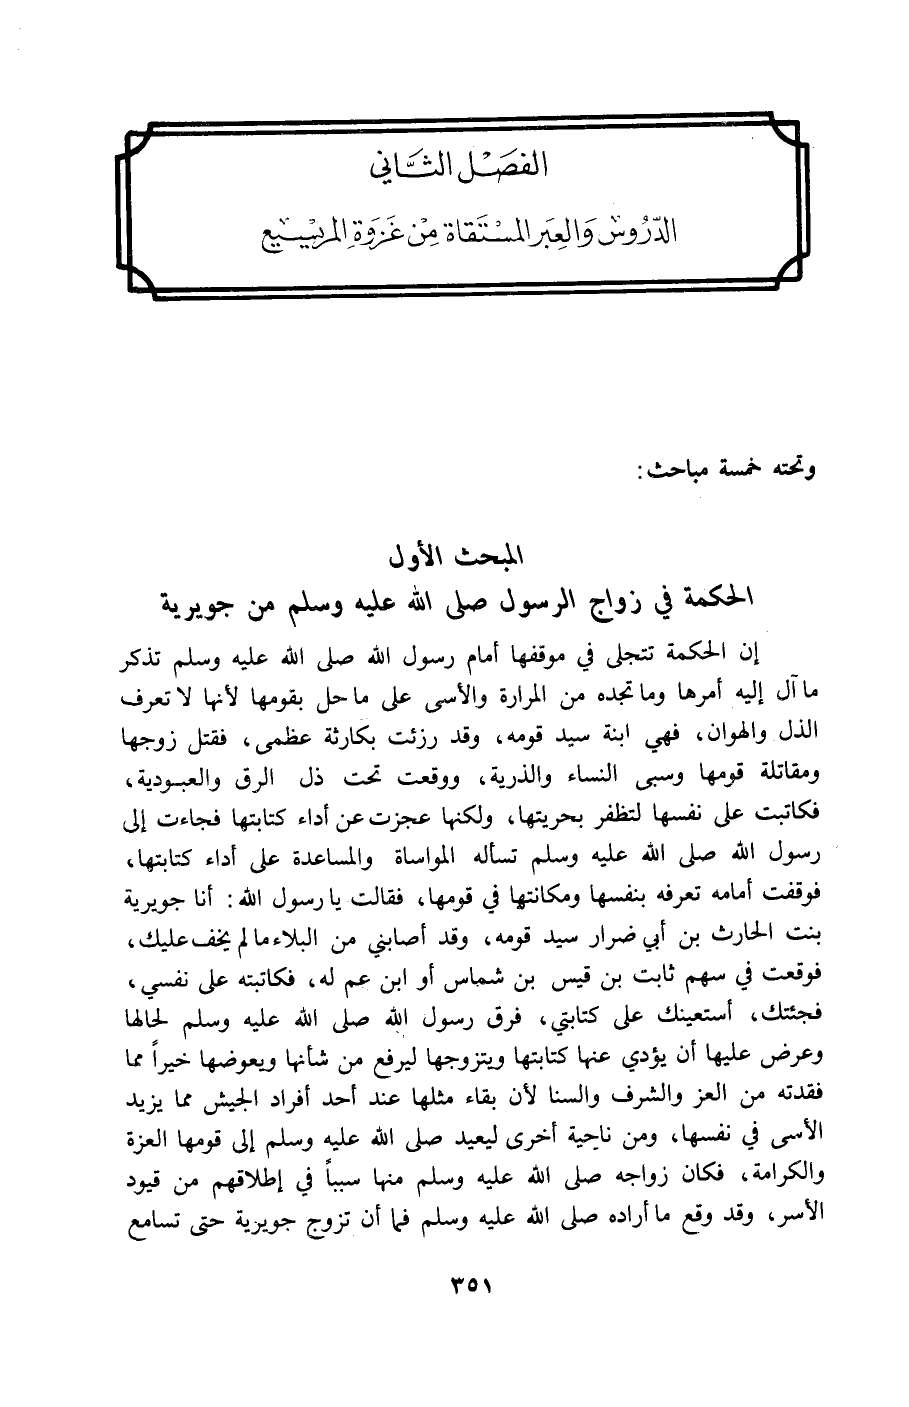 الفصل الثاني
الدروس والعبر المستقاة من غزوة المريسيع
وتحته خمسة مباحث :
المبحث الأول
الحكمة في زواج الرسول صلى الله عليه وسلم من جويرية
إن الحكمة تتجلى في موقفها أمام رسول الله صلى الله عليه وسلم تذكر
ما آل إليه أمرها وما تجده من المرارة والأسى على ما حل بقومها لأنها لا تعرف
الذل والهوان، فهي ابنة سيد قومه، وقد رزئت بكارثة عظمى، فقتل زوجها
ومقاتلة قومها وسبى النساء والذرية، ووقعت تحت ذل الرق والعبودية،
فكاتبت على نفسها لتظفر بحريتها، ولكنها عجزت عن أداء كتابتها فجاءت إلى
رسول الله صلى الله عليه وسلم تسأله المواساة والمساعدة على أداء كتابتها،
فوقفت أمامه تعرفه بنفسها ومكانتها في قومها، فقالت يا رسول الله : أنا جويرية
بنت الحارث بن أبي ضرار سيد قومه، وقد أصابني من البلاء ما لم يخف عليك،
فوقعت في سهم ثابت بن قيس بن شماس أو ابن عم له، فكاتبته على نفسي،
فجئتك، أستعينك على كتابتي، فرق رسول الله صلى الله عليه وسلم لحالها
وعرض عليها أن يؤدي عنها كتابتها ويتزوجها ليرفع من شأنها ويعوضها خيراً مما
فقدته من العز والشرف والسنا لأن بقاء مثلها عند أحد أفراد الجيش مما يزيد
الأسى في نفسها، ومن ناحية أخرى ليعيد صلى الله عليه وسلم إلى قومها العزة
والكرامة، فكان زواجه صلى الله عليه وسلم منها سبباً في إطلاقهم من قيود
الأسر، وقد وقع ما أراده صلى الله عليه وسلم فما أن تزوج جويرية حتى تسامع
٣٥١